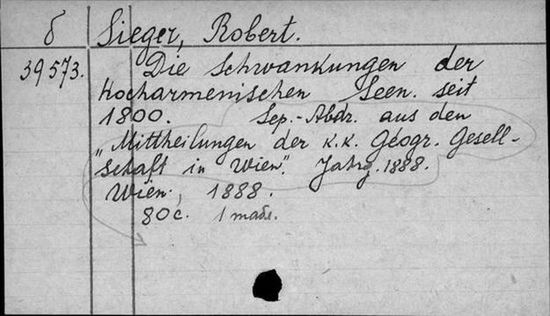 б Sieger, Robert.
39573. Die Schwankungen der
Hocharmenischen Seen seit
1800. Sep.-Abdr. aus den
„Mittheilungen der K.K. Geogr. Gesell-
schaft in Wien". Jahrg. 1888.
Wien, 1888.
80 с. 1 табл.